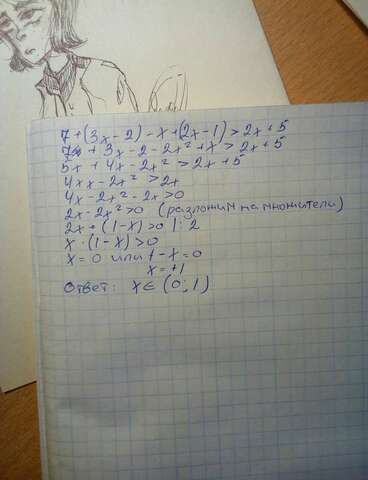 7 + (3x - 2) - x + (2x - 1) > 2x + 5
7 + 3x - 2 - 2x² + x > 2x + 5
5x + 4x - 2x² > 2x + 5
4x - 2x² > 2x
4x - 2x² - 2x > 0
2x - 2x² > 0 (разложим на множители)
2x * (1 - x) > 0 | : 2
x · (1 - x) > 0
x = 0 или 1 - x = 0
x = +1
Ответ: x ∈ (0; 1)